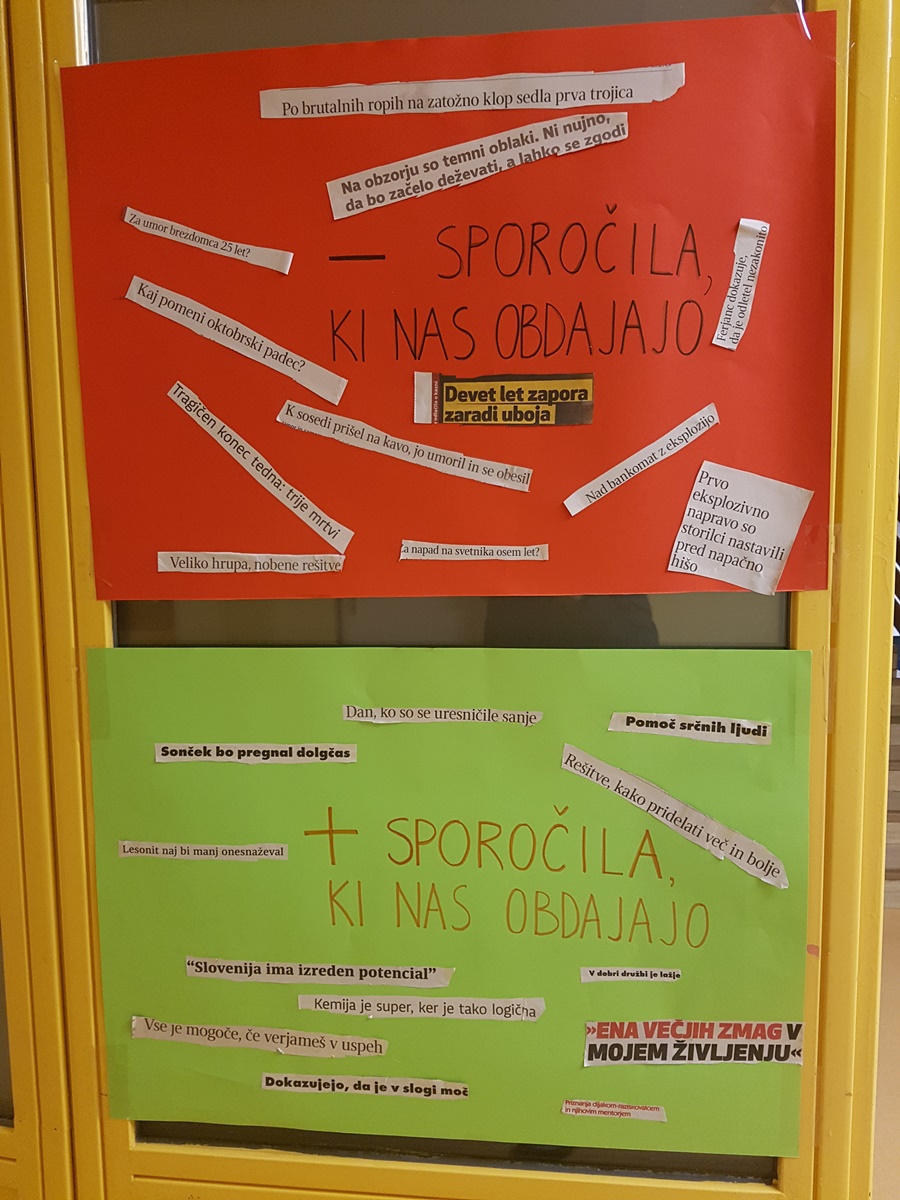 Po brutalnih ropih na zatožno klop sedla prva trojica
Na obzorju so temni oblaki. Ni nujno,
da bo začelo deževati, a lahko se zgodi
Za umor brezdomca 25 let?
– SPOROČILA,
KI NAS OBDAJAJO
Ferjanc dokazuje,
da je odletel nezakonito
Kaj pomeni oktobrski padec?
Devet let zapora
zaradi uboja
K sosedi prišel na kavo, jo umoril in se obesil
Tragičen konec tedna: trije mrtvi
Nad bankomat z eksplozijo
Prvo
eksplozivno
napravo so
storilci nastavili
pred napačno
hišo
Veliko hrupa, nobene rešitve
Za napad na svetnika osem let?
Dan, ko so se uresničile sanje
Pomoč srčnih ljudi
Sonček bo pregnal dolgčas
Rešitve, kako pridelati več in bolje
+ SPOROČILA,
KI NAS OBDAJAJO
Lesonit naj bi manj onesnaževal
“Slovenija ima izreden potencial”
V dobri družbi je lažje
Kemija je super, ker je tako logična
Vse je mogoče, če verjameš v uspeh
»ENA VEČJIH ZMAG V
MOJEM ŽIVLJENJU«
Dokazujejo, da je v slogi moč
Priznanja dijakom-raziskovalcem
in njihovim mentorjem